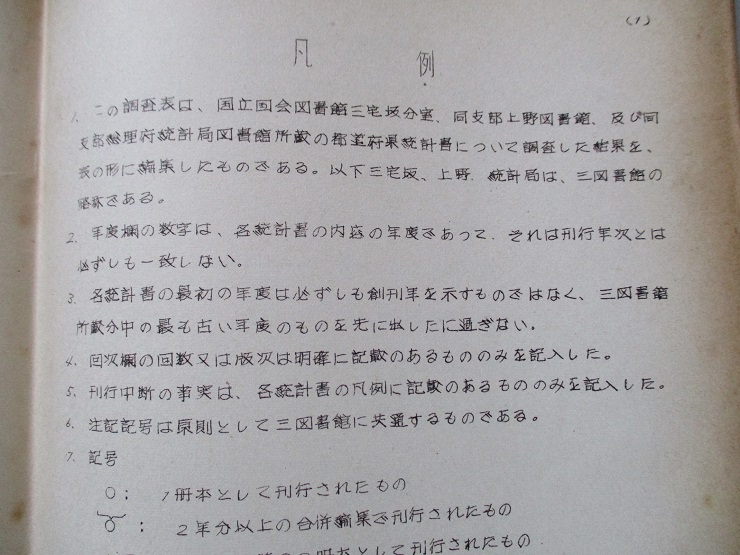 (1)
凡 例
1. この調査表は、国立国会図書館三宅坂分室、同支部上野図書館、及び同
支部総理府統計局図書館所蔵の都道府県統計書について調査した結果を、
表の形に編集したものである。以下三宅坂、上野、統計局は、三図書館の
略称である。
2. 年度欄の数字は、各統計書の内容の年度であって、それは刊行年次とは
必ずしも一致しない。
3. 各統計書の最初の年度は必ずしも創刊年を示すものではなく、三図書館
所蔵分中の最も古い年度のものを先に出したに過ぎない。
4. 回次欄の回数又は版次は明確に記載のあるもののみを記入した。
5. 刊行中断の事実は、各統計書の凡例に記載のあるもののみを記入した。
6. 注記記号は原則として三図書館に共通するものである。
7. 記号
○: 1冊本として刊行されたもの
: 2年分以上の合併編集で刊行されたもの
冊本として刊行されたもの